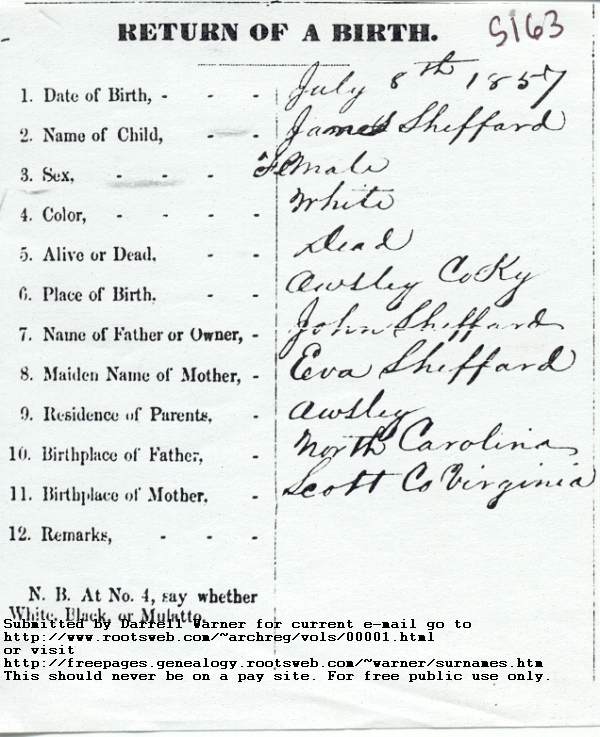 RETURN OF A BIRTH. S163
1. Date of Birth, - - - July 8th 1857
2. Name of Child, - - James Sheffard
3. Sex, - - - Female
4. Color, - - - - White
5. Alive or Dead, - - Dead
6. Place of Birth. - - Awsley Co Ky
7. Name of Father or Owner, - John Sheffard
8. Maiden Name of Mother, - Eva Sheffard
9. Residence of Parents, - Awsley
10. Birthplace of Father, - North Carolina
11. Birthplace of Mother, - Scott Co Virginia
12. Remarks, - - -
N. B. At No. 4, say whether
White, Black, or Mulatto.
Submitted by Darrell Warner for current e-mail go to
http://www.rootsweb.com/~archreg/vols/00001.html
or visit
http://freepages.genealogy.rootsweb.com/~warner/surnames.htm
This should never be on a pay site. For free public use only.